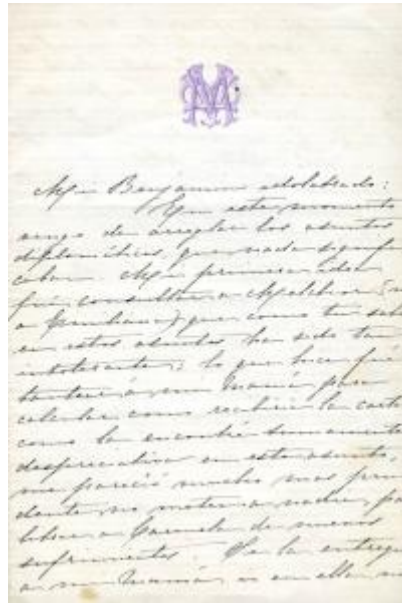 Mi Benjamin idolatrado:
En este momento
vengo de arreglar los asuntos
diplomáticos, que nada signifi
caban. Mi primera idea
fué consultar a Melchor (no
a Emiliana) que como tu sabes
en estos asuntos ha sido tan
intolerante; lo que hice fué
tantear á mi mamá para
calcular como recibiria la carta
como la encontré sumamente
despreciativa en este asunto,
me pareció mucho mas pru
dente no meter a nadie, pa
librar a Carmela de nuevos
sufrimientos. Se la entregué
a mi mamá, i en ella